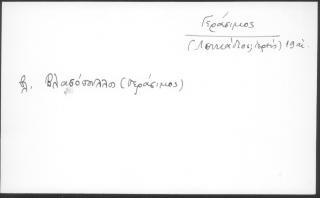 Γεράσιμος
(Λευκάδιος ἱερεύς) 19 αἰ.
βλ. Βλασόπουλλος (Γεράσιμος)